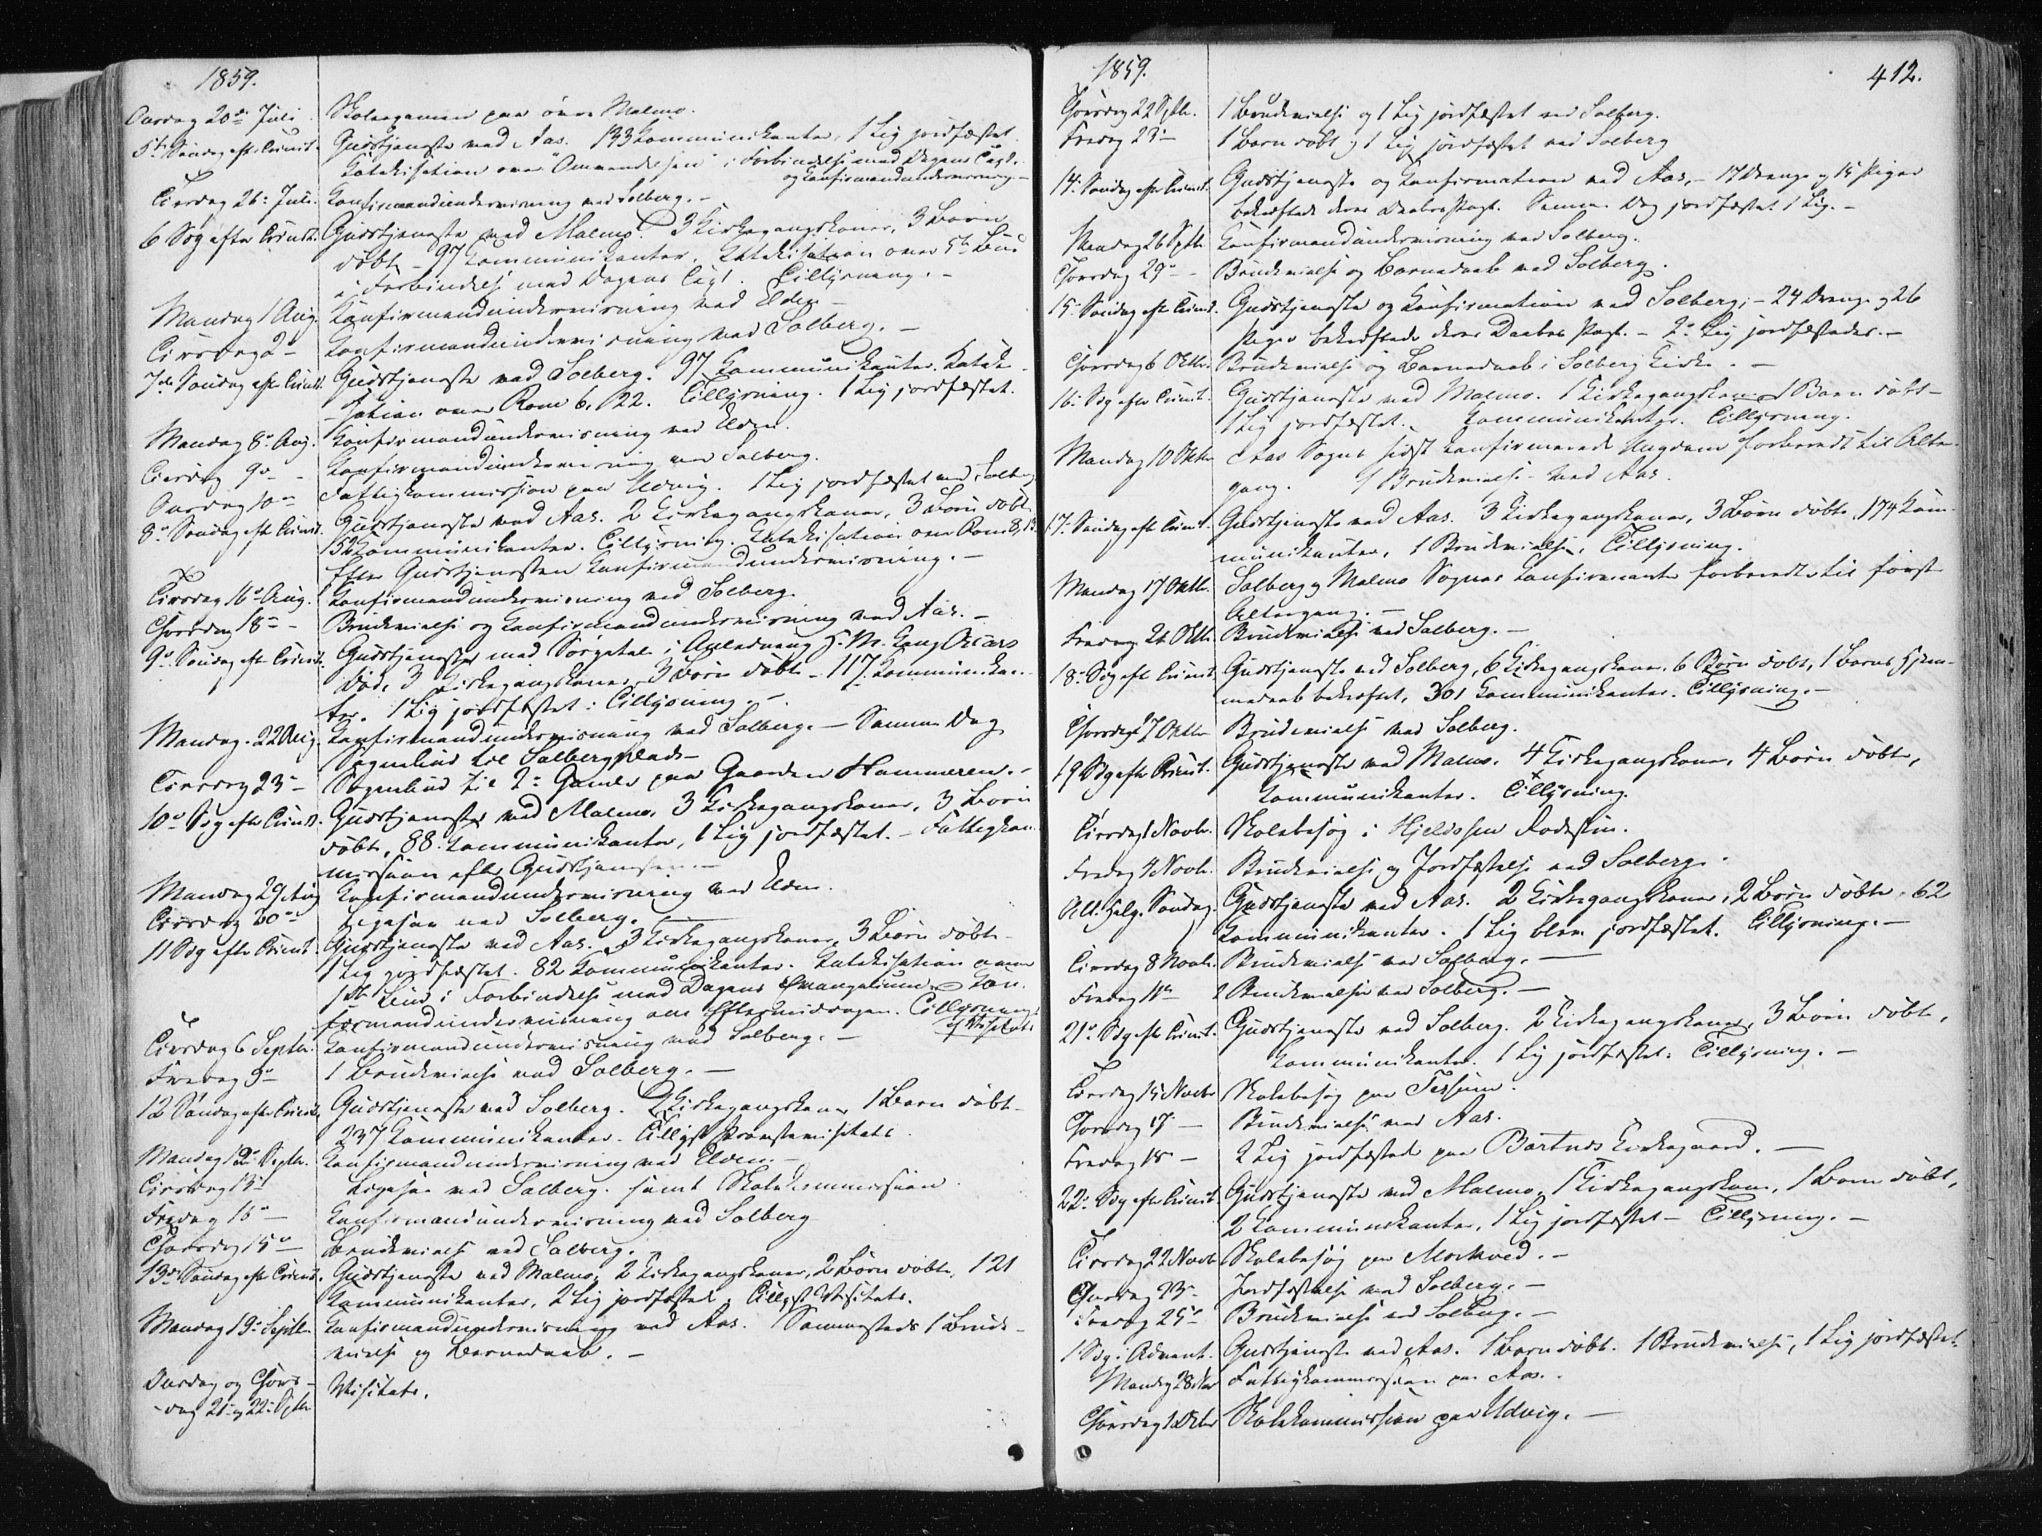 1859.
Onsdag 20de Juli. Skoleexamen paa övre Malmo.
5te Söndag eft. Trinit. Gudstjeneste ved Aas. 133 Kommunikanter, 1 Lig jordfæstet.
Katekisation over Ommendelsen i Forbindelse med Dagens Text.
og Konfirmandundervisning.
Tirsdag 26de Juli. Konfirmandundervisning ved Solberg. –
6 Sdg efter Trinit. Gudstjeneste ved Malmo. 3 Kirkegangskoner, 3 Börn
döbte – 97 Kommunikanter. Katekisation over 5te Bud
i Forbindelse med Dagens Text. Tillysning. –
Mandag 1 Aug. Konfirmandundervisning ved Elden –
Tirsdag 2 – Konfirmandundervisning ved Solberg. –
7de Söndag eft. Trinit. Gudstjeneste ved Solberg. 97 Kommunikanter. Kateki-
sation over Rom 6, 22. Tillysning. 1 Lig jordfæstet.
Mandag 8de Aug. Konfirmandundervisning ved Elden.
Tirsdag 9de – Konfirmandundervisning ved Solberg.
Onsdag 10de Fattigkommission paa Udvig. 1 Lig jordfæstet ved Solberg
8de Söndag eft. Trinit. Gudstjeneste ved Aas. 2 Kirkegangskoner, 3 Börn döbte
52 Kommunikanter. Tillysning. Katekisation over Rom 8, 13
Efter Gudstjenesten Konfirmandundervisning. –
Tirsdag 16de Aug. Konfirmandundervisning ved Solberg.
Thorsdag 18de – Brudevielse og Konfirmandundervisning ved Aas. –
9de Söndag eft. Trinit. Gudstjeneste med Sörgetale i Anledning H. M. Kong Oscars
Död. 3 Kirkegangskoner, 3 Börn döbte – 117 Kommunikan-
ter. 1 Lig jordfæstet. Tillysning. –
Mandag 22 Aug. Konfirmandundervisning ved Solberg. – Samme Dag
Sognebud til Solbergplads –
Tirsdag 23 – Sognebud til 2de Gamle paa Gaarden Hammeren. –
10de Sdg eft. Trinit. Gudstjeneste ved Malmo, 3 Kirkegangskoner, 3 Börn
döbte, 88 Kommunikanter, 1 Lig jordfæstet. – Fattigkom-
mission efter Gudstjenesten. –
Mandag 29 Aug Konfirmandundervisning ved Elden.
Tirsdag 30de Ligesaa ved Solberg. –
11 Sdg efter Trinit. Gudstjeneste ved Aas. 3 Kirkegangskoner, 3 Börn döbte –
1 Lig jordfæstet. 82 Kommunikanter. Katekisation over
1ste Bud i Forbindelse med Dagens Evangelium. – Kon-
firmandundervisning om Eftermiddagen. Tillysning
af Visitats.
Tirsdag 6 Septbr. Konfirmandundervisning ved Solberg. –
Fredag 9de 1 Brudevielse ved Solberg. –
12 Söndag efter Trinit. Gudstjeneste ved Solberg. 2 Kirkegangskoner, 1 Barn döbt –
237 Kommunikanter. Tillyst Provstevisitats.
Mandag 12te Septbr. Konfirmandundervisning ved Elden –
Tirsdag 13de Ligesaa ved Solberg. samt Skolekommission.
Fredag 16de – Konfirmandundervisning ved Solberg
Thorsdag 15de – Brudevielse ved Solberg.
13de Söndag eft. Trinit. Gudstjeneste ved Malmo, 2 Kirkegangskoner, 2 Börn döbte, 121
Kommunikanter, 2 Lig jordfæstede. Tillyst Visitats.
Mandag 19de Septbr. Konfirmandundervisning ved Aas. Sammesteds 1 Brude-
vielse og Barnedaab. –
Onsdag og Thors-
dag 21de og 22de Sptbr Visitats.
1859.
412.
Thorsdag 22 Sptbr. 1 Brudevielse og 1 Lig jordfæstet ved Solberg.
Fredag 23de – 1 Barn döbt og 1 Lig jordfæstet ved Solberg
14de Söndag efter Trinit. Gudstjeneste og Konfirmation ved Aas, – 17 Drenge og 15 Piger
bekræftede deres Daabs Pagt. Samme Dag jordfæstet 1 Lig. –
Mandag 26 Sptbr. Konfirmandundervisning ved Solberg.
Thorsdag 29de – Brudevielse og Barnedaab ved Solberg.
15de Söndag eft. Trinit. Gudstjeneste og Konfirmation ved Solberg, – 24 Drenge og 26
Piger bekræftede deres Daabs Pagt. – 2de Lig jordfæstedes. –
Thorsdag 6 Oktbr. Brudevielse og Barnedaab i Solberg Kirke. –
16de Sdg efter Trinit. Gudstjeneste ved Malmo. 1 Kirkegangskone, 1 Barn döbt –
1 Lig jordfæstet. Kommunikanter. Tillysning.
Mandag 10 Oktbr Aas Sogns sidst konfirmerede Ungdom forberedt til Alter-
gang. 1 Brudevielse ved Aas.
17de Söndag eft. Trinit. Gudstjeneste ved Aas. 3 Kirkegangskoner, 3 Börn döbte, 174 Kom-
munikanter, 1 Brudevielse, Tillysning.
Mandag 17 Oktbr. Solberg og Malmo Sognes Konfirmanter forberedte til först
Altergang. –
Fredag 21 Oktbr. Brudevielse ved Solberg. –
18de Sdg eft Trinit. Gudstjeneste ved Solberg, 6 Kirkegangskoner, 6 Börn döbt, 1 Barns Hjem-
medaab bekræftet, 301 Kommunikanter. Tillysning. –
Thorsdag 27 Oktbr Brudevielse ved Solberg.
19 Sdg efter Trinit. Gudstjeneste ved Malmo. 4 Kirkegangskoner, 4 Börn döbte,
Kommunikanter. Tillysning.
Tirsdag 1 Novbr. Skolebesög i Hjeldssen Rodestue.
Fredag 4 Novbr. Brudevielse og Jordfæstelse ved Solberg.
All. Helg. Söndag. Gudstjeneste ved Aas. 2 Kirkegangskoner, 2 Börn döbte, 62
Kommunikanter. 1 Lig blev jordfæstet. Tillysning. –
Tirsdag 8 Novbr. Brudevielse ved Solberg. –
Fredag 11te 2 Brudevielser ved Solberg. –
21de Sdg eft Trinit. Gudstjeneste ved Solberg. 2 Kirkegangskoner, 3 Börn döbte,
Kommunikanter. 1 Lig jordfæstet. Tillysning. –
Tirsdag 15 Novbr Skolebesög paa Tessem.
Thorsdag 17 – Brudevielse ved Aas.
Fredag 18 – 2 Lig jordfæstede paa Bartnes Kirkegaard. –
22de Sdg efter Trinit Gudstjeneste ved Malmo, 1 Kirkegangskone, 1 Barn döbt,
2 Kommunikanter, 1 Lig jordfæstet – Tillysning. –
Tirsdag 22 Novbr Skolebesög paa Morkved. –
Onsdag 23de Jordfæstelse ved Solberg. –
Fredag 25de Brudevielse ved Solberg. –
1 Sdg i Advent. Gudstjeneste ved Aas. 1 Barn döbt. 1 Brudevielse, 1 Lig jordfæstet.
Mandag 28 Nov Fattigkommission paa Aas.
Thorsdag 1 Decbr Skolekommission paa Udvig. –